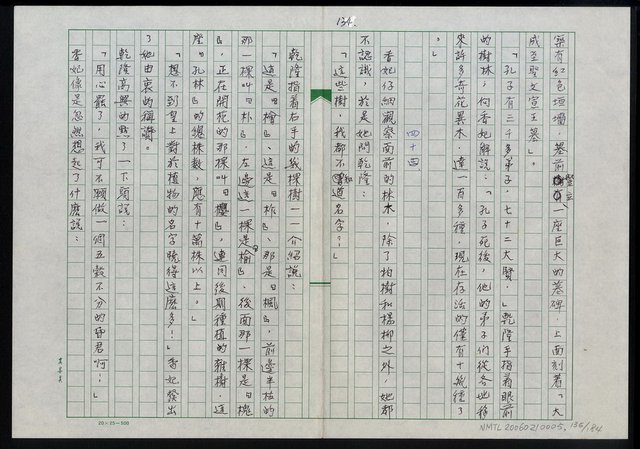 134.
築有紅色垣墻，墓前豎立一座巨大的墓碑，上面刻著「大
成至聖文宣王墓」。
「孔子有三千多弟子，七十二大賢。」乾隆手指著眼前
的樹林，向香妃解說：「孔子死後，他的弟子們從各地移
來許多奇花異木，達一百多種，現在存活的僅有十幾種了
。」
四十四
香妃仔細觀察面前的林木，除了柏樹和楊柳之外，她都
不認識，於是她問乾隆：
「這些樹，我都不知道名字？」
乾隆指着右手的幾棵樹一一介紹說：
「這是『檜』、這是『柞』、那是『楓』，前邊半枯的
那一棵叫『朴』，左邊這一棵是『榆』、後面那一棵是『槐
』，正在開花的那棵叫『櫻』，連同後期種植的雜樹，這
座『孔林』的總株數，應有十萬株以上。」
「想不到皇上對於植物的名字曉得這麼多！」香妃發出
了她由衷的稱讚。
乾隆高興的點了一下頭說：
「用心罷了，我可不願做一個五穀不分的昏君啊！」
香妃像是忽然想起了什麼說：
20×25=500
NMTL20060210005.136/184